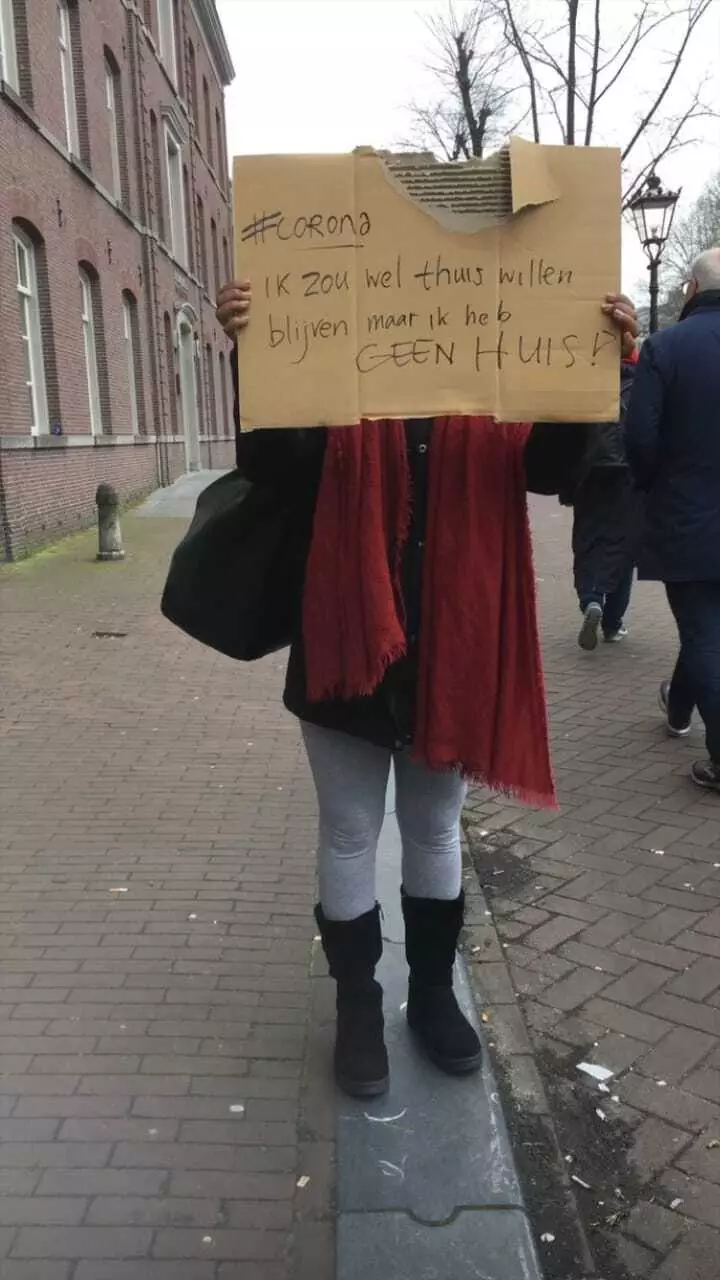 #corona
ik zou wel thuis willen
blijven maar ik heb
GEEN HUIS!